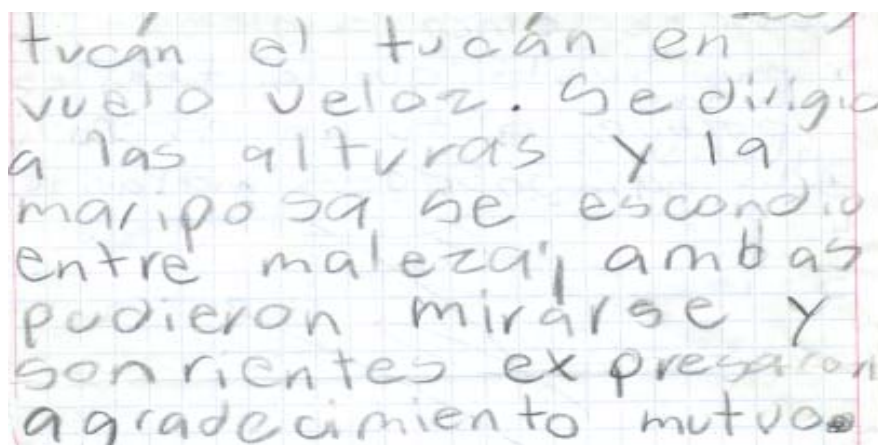 tucán el tucán en
vuelo veloz. Se dirigio
a las alturas y la
mariposa se escondio
entre maleza, ambas
pudieron mirarse y
sonrientes expresaron
agradecimiento mutuo.